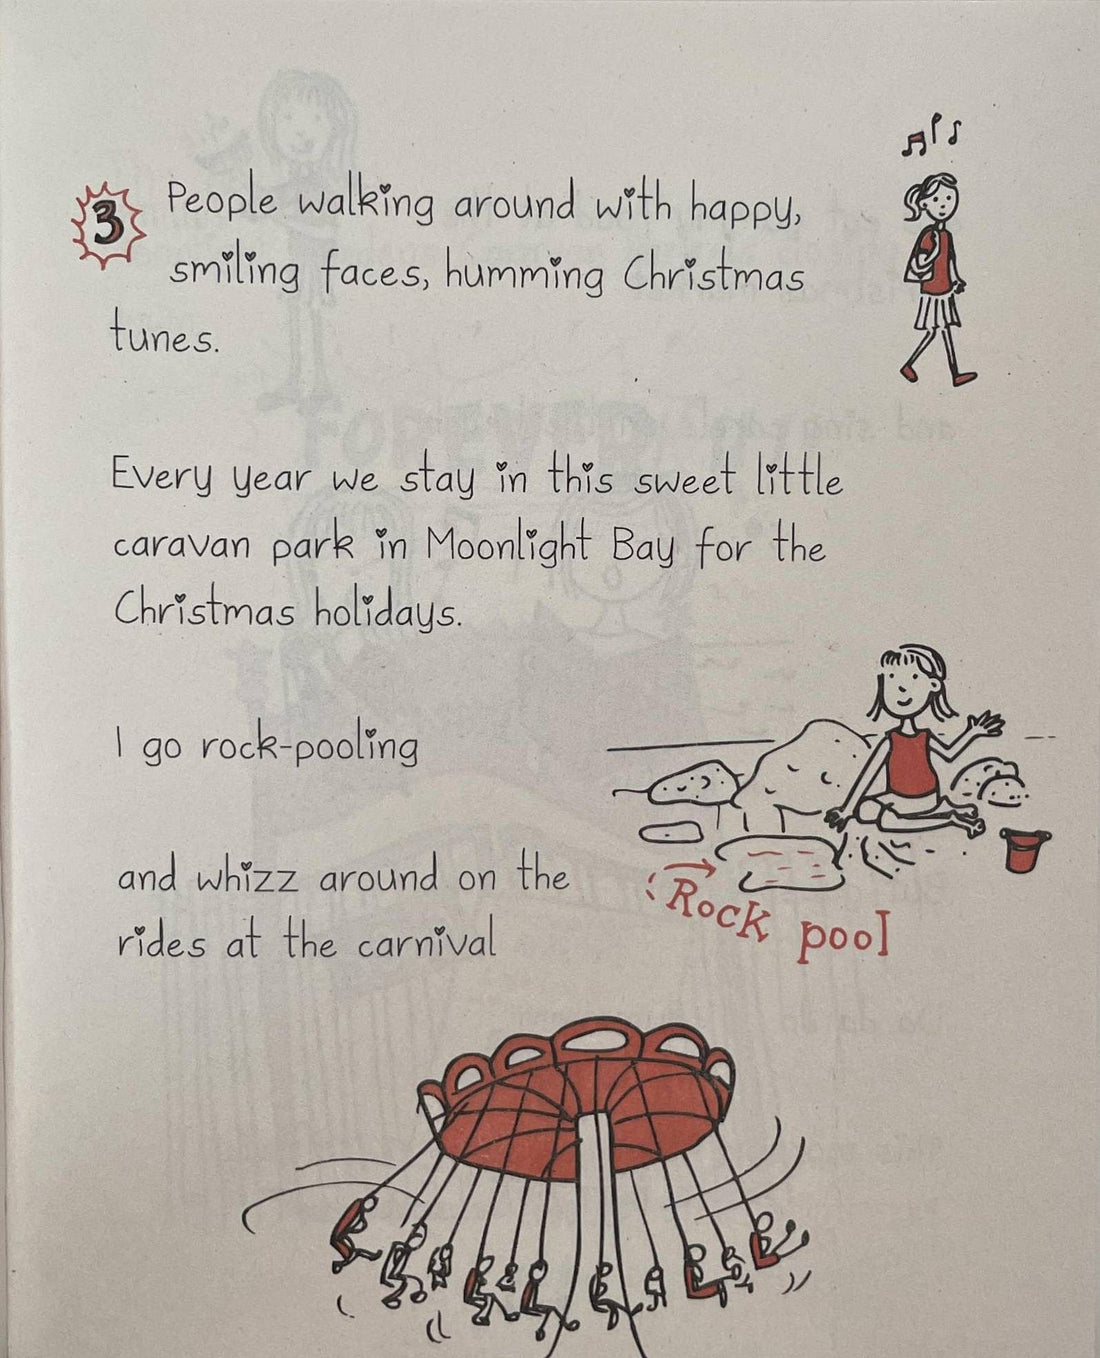 3 People walking around with happy,
smiling faces, humming Christmas
tunes.
Every year we stay in this sweet little
caravan park in Moonlight Bay for the
Christmas holidays.
I go rock-pooling
Rock pool
and whizz around on the
rides at the carnival